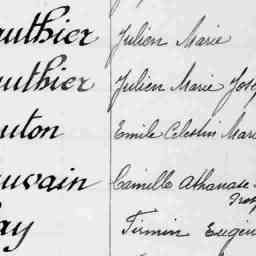 authier Julien Marie
authier Julien Marie Jose
uton Emile Celestin Mari
uvain Camille Athanase
ay Firmin Eugèn